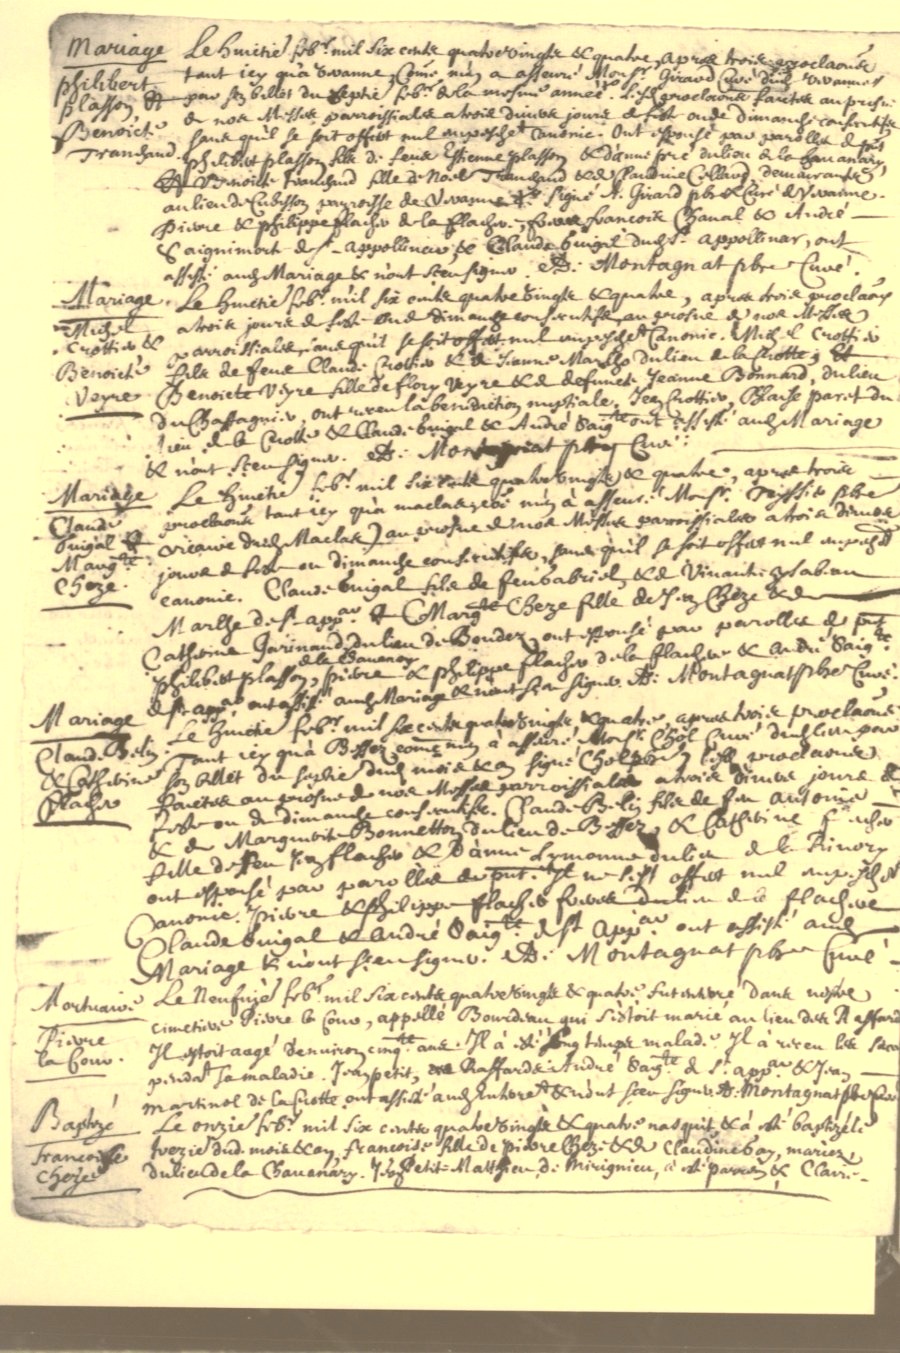 Mariage
philibert
plasson &
Benoicte
Tranchand
Le huictie febr. mil six cents quatre vingts & quatre, apres trois proclaõns
tant icy qu'a vivanne, comme m'en a asseuré Mons.r Girard Curé dud. vivanne
par son billet du septie febr. de la mesme année. Lesd. proclaõns faictes au prosne
de nos Messes parroissiales a trois divers jours de feste ou de dimanche consecutifs
sans qu'il se soit offert nul empesche.t canonic. Ont espousé par parolles de p.nt
philibert plasson fils de feux Estienne plasson & d'anne du lieu de la chananary
& Benoicte Tranchand fille de Noël Tranchand & de Claudine demeurante
au lieu de parroisse de Vivanne. Signé A. Girard pbre & Curé de Vivanne.
Pierre & philippe flachier de la flachere, freres francois Chanal & André
Saignimort de S.t appollinar, & Claude buigal dud. S.t appollinar, ont
assisté aud. Mariage & n'ont sceu signer. A. Montagnat pbre Curé.
Mariage
Michel
Crottier &
Benoicte
Veyre
Le huictie febr. mil six cents quatre vingts & quatre, apres trois proclaõns
a trois jours de feste ou de dimanche consecutifs, au prosne de nos Messes
parroissiales, sans qu'il se soit offert nul empesche.t Canonic. Michel Crottier
fils de feu Claude Crottier & de Jeanne Marthe du lieu de la Crotte, Et
Benoicte Veyre fille de flory Veyre & de defuncte Jeanne Bonnard, du lieu
du Chassagnier, ont receu la benediction nuptiale. Jean Crottier, Blaise paret du
lieu de la Crotte & Claude buigal & André Saig.te ont assisté aud. Mariage
& n'ont sceu signer. A. Montagnat pbre Curé.
Mariage
Claude
buigal &
Marg.te
Cheze.
Le huictie febr. mil six cents quatre vingts & quatre, apres trois
proclaõns tant icy qu'a maclas, m'en a asseuré Mons.r pbre
vicaire dud. Maclas) au prosne de nos Messes parroissiales a trois divers
jours de feste ou dimanche consecutifs, sans qu'il se soit offert nul empesche.t
canonic. Claude buigal fils de feu Gabriel, & de
Marthe de S.t app.ar & Marg.te Cheze fille de Jean Cheze & de
Catherine Garinand, du lieu de Boudez, ont espousé par parolles de p.nt
philibert plasson, pierre & philippe flachier de la flachere & André Saig.te
de S.t app.ar ont assisté aud. Mariage & n'ont sceu signer. A. Montagnat pbre Curé.
Mariage
Claude Belin
& Catherine
flachier
Le huictie febr. mil six cents quatre vingts & quatre, apres trois proclaõns
Tant icy qu'a Bessez comme m'en a asseuré Mons.r Chol Curé dud. lieu par
son billet du septie dud. mois & an signé Chol pbre, lesd. proclaõns
faictes au prosne de nos Messes parroissiales a trois divers jours de
feste ou de dimanche consecutifs. Claude Belin fils de feu Antoine
& de Marguerite Bonnetton, du lieu de Bessez, & Catherine flachier
fille de feu Jean flachier & d'Anne Lymonne du lieu de la Rivory
ont espousé par parolles de p.nt. Il ne s'est offert nul empesche.t
Canonic. Pierre & Philippe flachier freres du lieu de la flachere
Claude buigal & André Saig.te de S.t app.ar ont assisté aud.
Mariage & n'ont sceu signer. A. Montagnat pbre Curé
Mortuaire
Pierre
la Cour.
Le Neufvie febr. mil six cents quatre vingts & quatre fut enterré dans nostre
cimetiere Pierre la Cour, appellé Bourdeau qui s'estoit marié au lieu des Raffards
Il estoit aagé d'environ cinq.te ans. Il a esté long temps malade. Il a receu les Sacr.
penda.t sa maladie. Jean petit, des Raffards André Saig.te de S.t app.ar & Jean
martinol de la Crotte ont assisté aud. Enterre.t & n'ont sceu signer. A. Montagnat pbre Curé
Baptezé
francoise
Cheze
Le onzie febr. mil six cents quatre vingts & quatre nasquit & à esté baptizée le
treizie dud. mois & an, francoise fille de pierre Cheze & de Claudine bay, mariez,
du lieu de la Chananary. Jean petit Matthieu de Mirignieu, à esté parrain & Claire